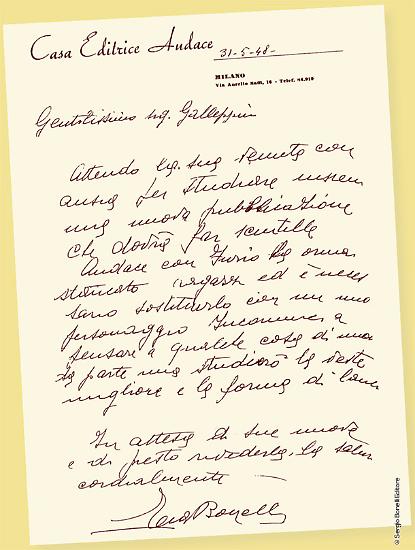 Casa Editrice Audace
31-5-48-
MILANO
Via Aurelio Saffi, 16 - Telef. 84.910
Gentilissimo sig. Galleppini
Attendo la sua venuta con
ansia per studiare insieme
una nuova pubblicazione
che dovrà far scintille
Audace con Furio ha ormai
stancato i ragazzi ed è neces
sario sostituirlo con un nuovo
personaggio Incominci a
pensare a qualche cosa di nuovo
da parte mia studierò la veste
migliore e la forma di lancio
In attesa di sue nuove
e di presto rivederla, la saluto
cordialmente
Tea Bonelli
© Sergio Bonelli Editore